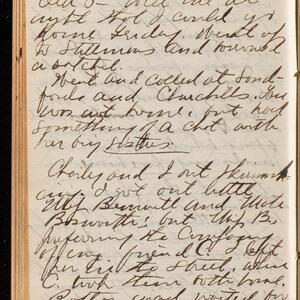 told me at
night that I could go
home Tuesday. Went to
W Stillmans and borrowed
a satchel.
Went and called at Sand-
fords and Churchills. Geo
was not home; but had
something of a chat with
her big sisters.
Charley and I out
I got out both
Miss Bennett and Mate
Bosworth; but Miss B.
preferring the Company
of my friend C. I left
her in the street, when
C. took them both home.